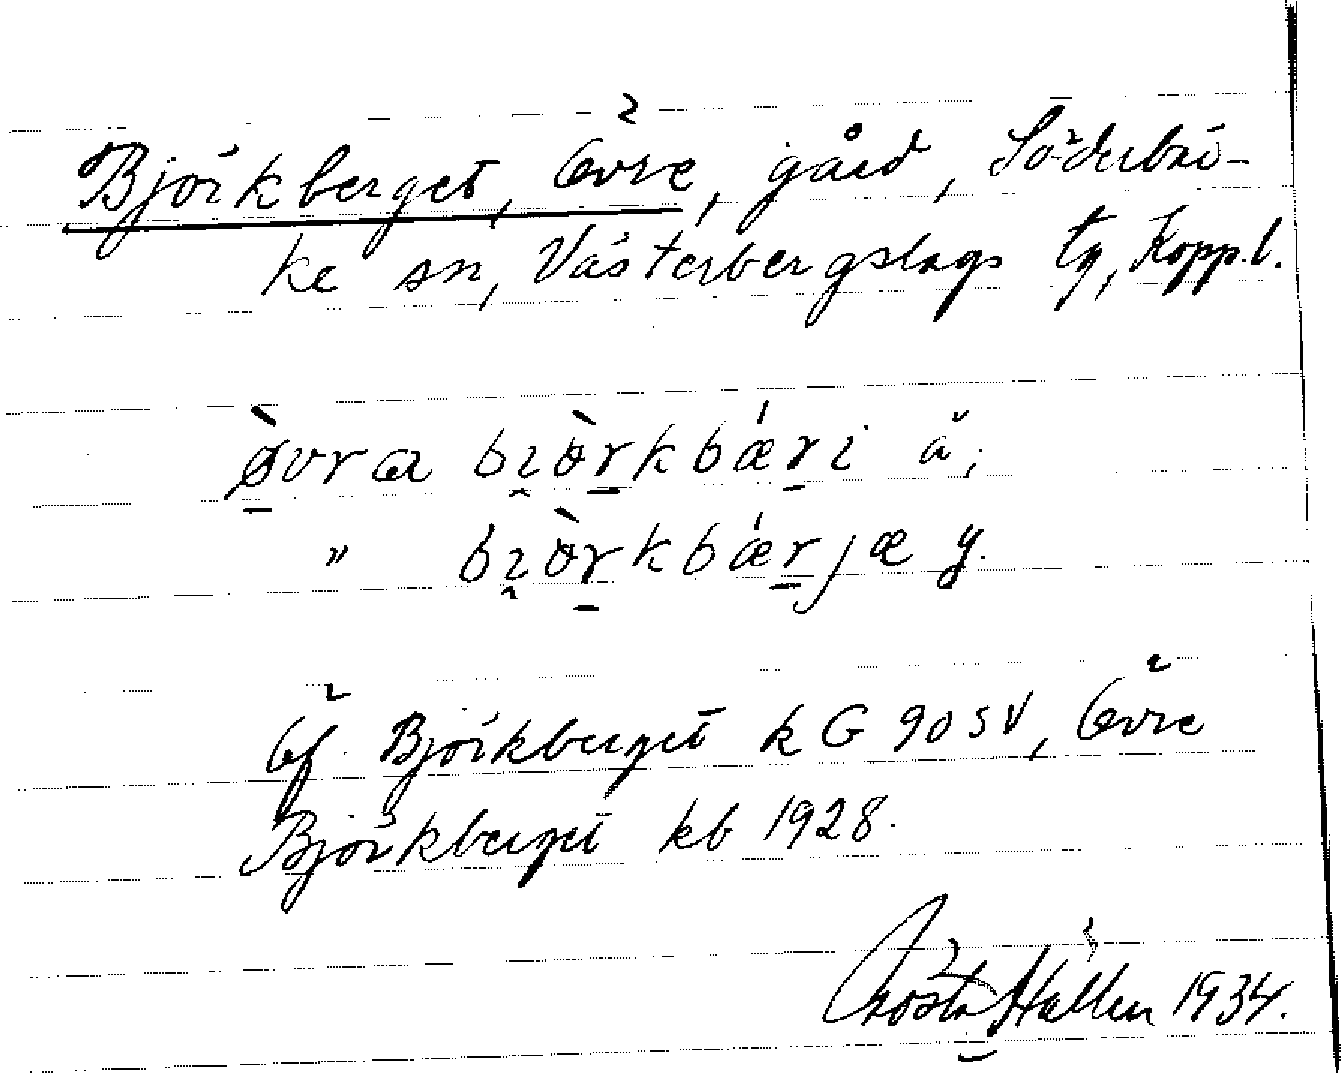 Björkberget, Övre, gård, Söderbär-
ke sn, Västerbergslags tg, Kopp.l.
ø̱̀vra bı̯ò̱rkbǽ̱ri ä;
" bı̯òṟkbǽṟjæ y.
Jf. Björkberget k G 90 SV, Övre
Björkberget kb 1928.
Gösta Hallén 1934.